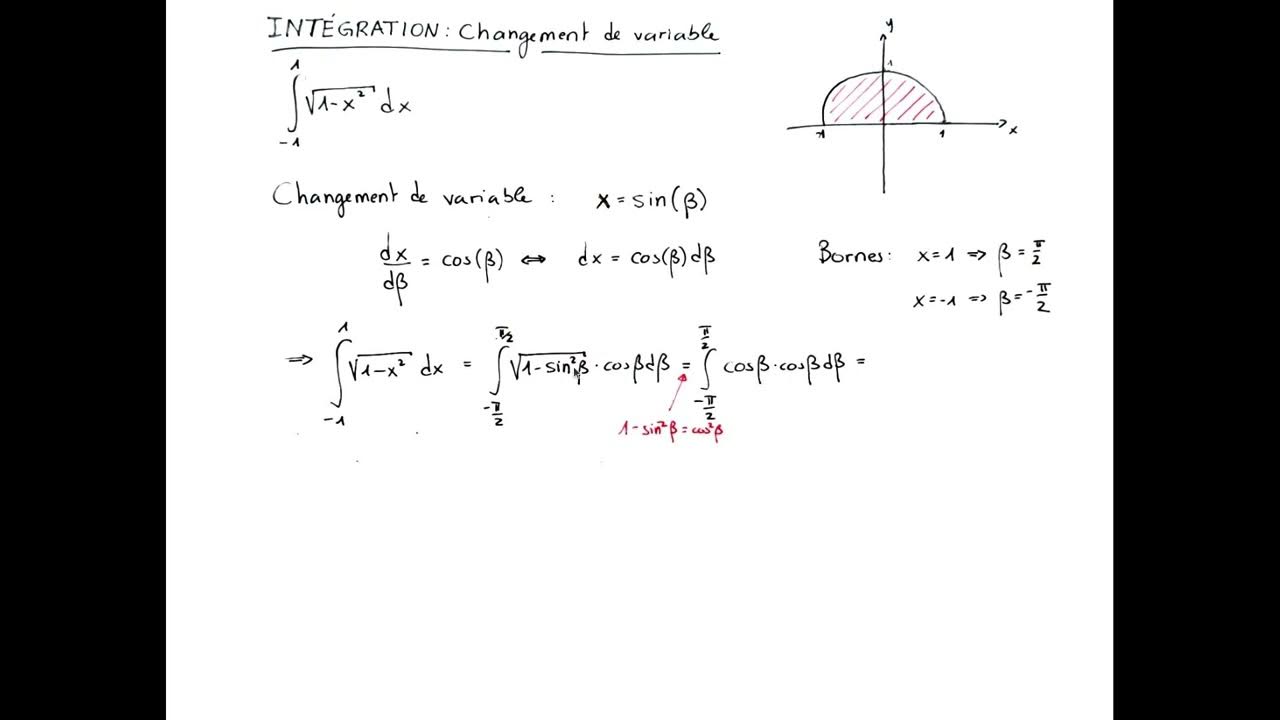 INTÉGRATION : Changement de variable
∫_{-1}^{1} √(1-x²) dx
y
1
-1 1 x
Changement de variable : x = sin(β)
dx/dβ = cos(β) ⇔ dx = cos(β)dβ
Bornes: x=1 ⇒ β = π/2
x=-1 ⇒ β = -π/2
⇒ ∫_{-1}^{1} √(1-x²) dx = ∫_{-π/2}^{π/2} √(1-sin²β) · cosβdβ = ∫_{-π/2}^{π/2} cosβ·cosβdβ =
1-sin²β = cos²β